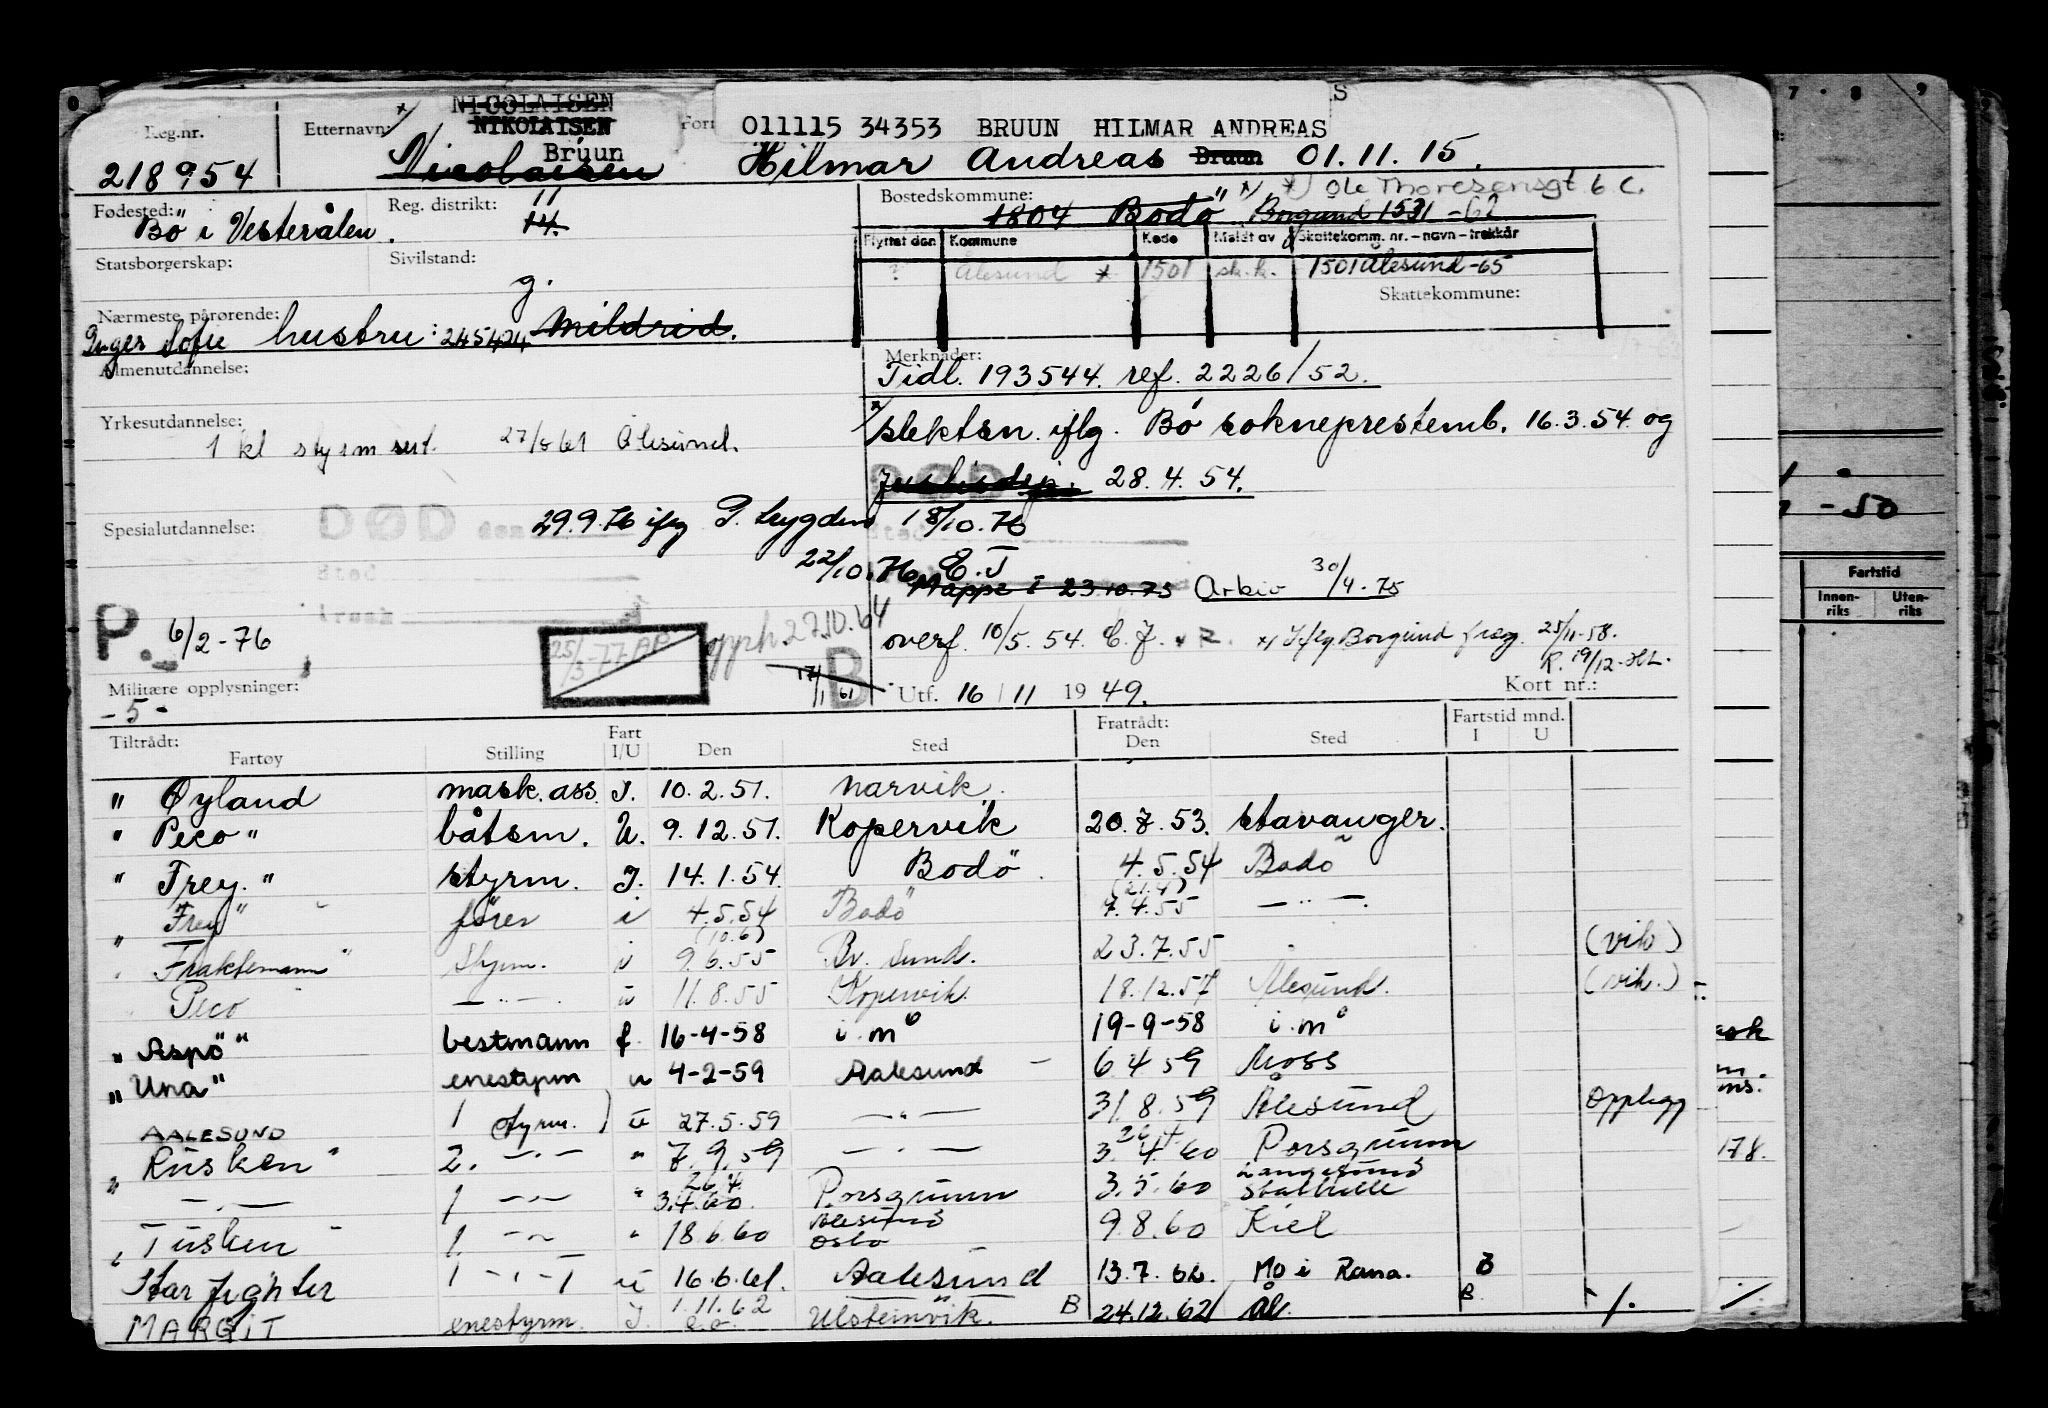 NICOLAISEN
NIKOLAISEN
Reg.nr. Etternavn: 011115 34353 BRUUN HILMAR ANDREAS
Bruun
218954 Nicolaisen Hilmar Andreas Bruun 01.11.15.
Fødested: Reg. distrikt: 11 Bostedskommune: Ole Thoresensgt 6 C.
Bö i Vesterålen. 14. 1804 Bodö Borgund 1531-62
Flyttet den Kommune Kode Meldt av Skattekomm. nr. - navn - trekkår
Statsborgerskap: Sivilstand: ? Ålesund 1501 sk.k. 1501 Ålesund-65
g. Skattekommune:
Nærmeste pårørende:
Inger Sofie hustru: 245424 Mildrid.
Almenutdannelse: Merknader:
Tidl. 193544. ref. 2226/52.
Yrkesutdannelse: slektsn. iflg. Bö sokneprestemb. 16.3.54 og
1 kl styrm sert. Ålesund. Justisdep. 28.4.54.
Spesialutdannelse: DØD den 29.9.76 18/10.76
Sted 22/10.76 E.J
Årsak Mappe i 23.10.75 Arkiv 30/4.75
P. 6/2-76 25/3-77 AP opph 27.10.64 overf. 10/5.54. E.J. Iflg Borgund freg. 25/11-58.
R. 19/12-
Militære opplysninger: 17/1 61 B Utf. 16/11 1949. Kort nr.:
-5-
Tiltrådt: Fratrådt: Fartstid mnd.
Fartøy Stilling Fart I/U Den Sted Den Sted I U
" Øyland mask.ass. I. 10.2.51. Narvik.
" Peco" båtsm. U. 9.12.51. Kopervik 20.7.53. Stavanger.
" Frey." styrm. I. 14.1.54. Bodö. 4.5.54 Bodö
(21.4)
" Frey" fører i 4.5.54 Bodö 7.4.55 — " —
(10.6)
" Fraktemann" Styrm. i 9.6.55 Br. sund. 23.7.55 (vik)
Peco — " — u 11.8.55 Kopervik. 18.12.57 Ålesund. (vik.)
" Aspö" bestmann f. 16-4-58 i.m° 19-9-58 i.m°
" Una" enestyrm u 4-2-59 Aalesund — 6 4 59 Moss
AALESUND 1 styrm. u 27.5.59 — " — 31.8.59 Ålesund Opplegg
" Rusken" 2. — " — " 7.9.59 — " — 3.4.60 Porsgrunn
26.4 Langesund
— " — 1 — " — " 3.4.60 Porsgrunn 3.5.60 Stathelle
Ålesund
" Tusken 1. — " — " 18.6.60 Oslo 9.8.60 Kiel
Star fighter 1 — " — u 16.6.61. Aalesund 13.7.62. Mo i Rana. 3
1.11.62
MARGIT enestyrm. I. Ulsteinvik. B 24.12.62 Ål. B
Fartstid
Innenriks Utenriks